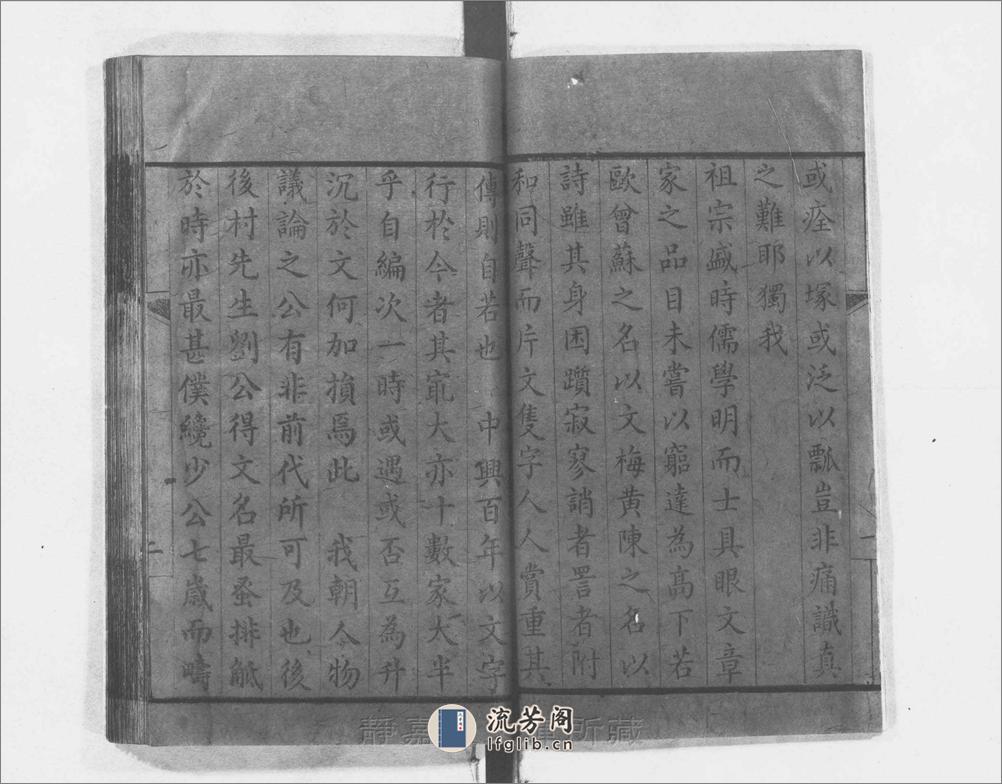 或痊以塚或泛以瓢豈非痛識真
之難耶獨我
祖宗盛時儒學明而士具眼文章
家之品目未嘗以窮達為高下若
歐曾蘇之名以文梅黄陳之名以
詩雖其身困躓寂寥誚者詈者附
和同聲而片文隻字人人賞重其
傳則自若也 中興百年以文字
行於今者其冣大亦十數家大半
乎自編次一時或遇或否互為升
沉於文何加損焉此 我朝人物
議論之公有非前代所可及也後
後村先生劉公得文名最蚤排觝
於時亦最甚僕纔少公七歲而疇
一
二
静嘉 所藏
流芳阁
lfglib.cn